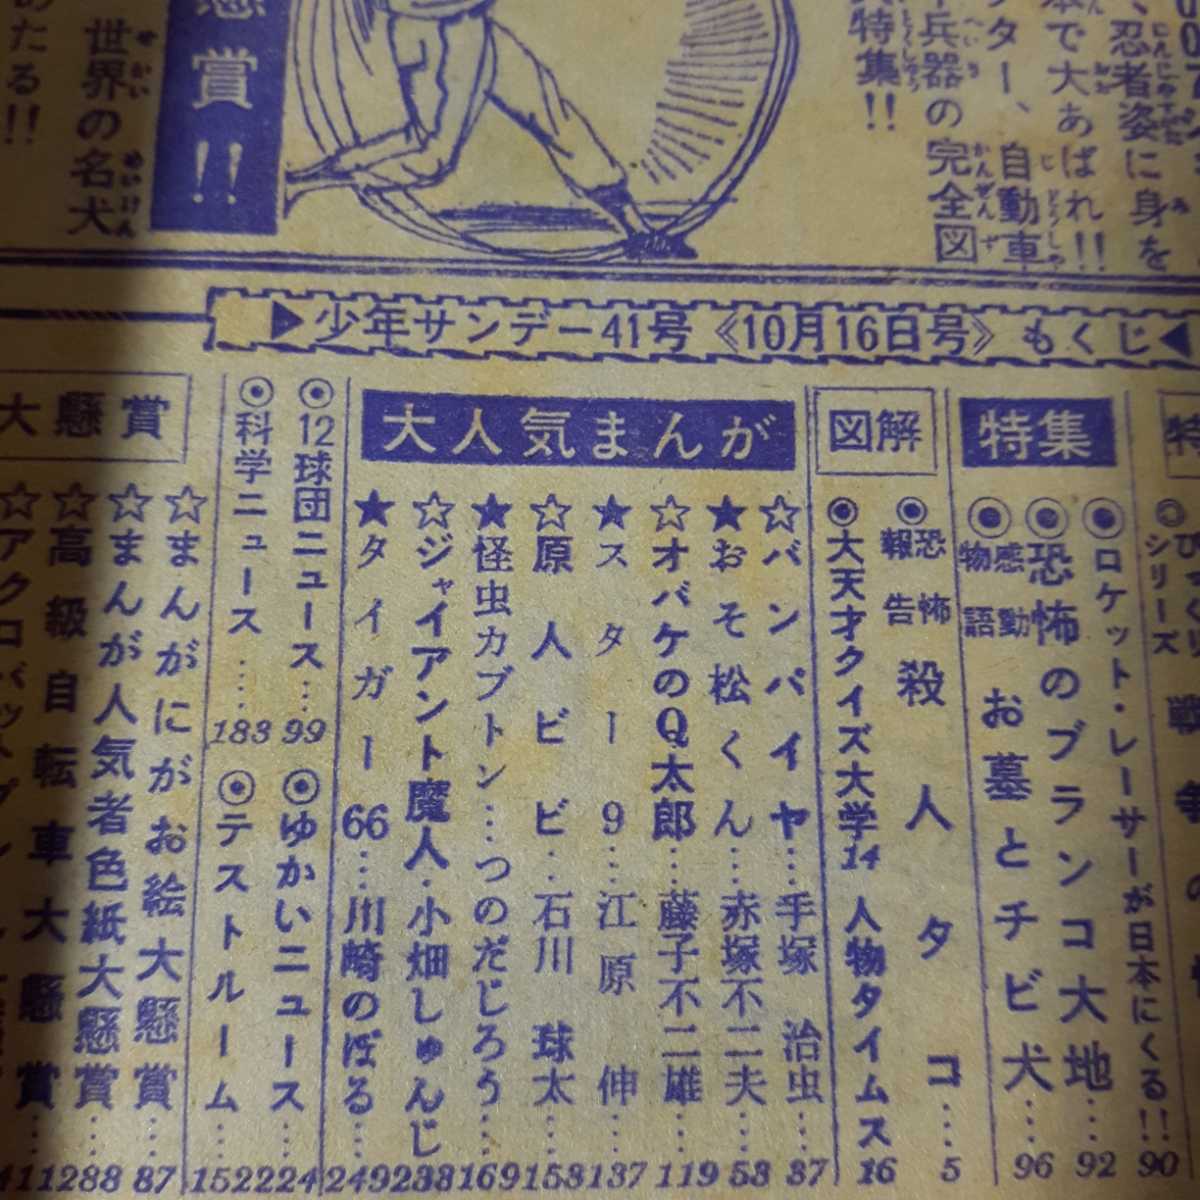 忍者姿に身を
本で大あばれ!!
ター、自動車
兵器の完全図
特集!!
懸賞!!
世界の名犬
たる!!
▶少年サンデー41号《10月16日号》もくじ◀
シリーズ
特集
◉ロケット・レーサーが日本にくる!!……90
◉恐怖のブランコ大地……92
◉感動物語 お墓とチビ犬……96
図解
◉恐怖報告 殺人タコ……5
◉大天才クイズ大学14 人物タイムス16
大人気まんが
☆バンパイヤ…手塚治虫……37
★おそ松くん…赤塚不二夫……53
☆オバケのQ太郎…藤子不二雄……119
★スター9…江原伸……137
☆原人ビビ…石川球太……153
★怪虫カブトン…つのだじろう……169
☆ジャイアント魔人・小畑しゅんじ……233
★タイガー66…川崎のぼる……249
◉12球団ニュース…99
◉ゆかいニュース……224
◉科学ニュース……183
◉テストルーム……152
大懸賞
☆まんがにがお絵大懸賞……87
☆まんが人気者色紙大懸賞……288
☆高級自転車大懸賞……